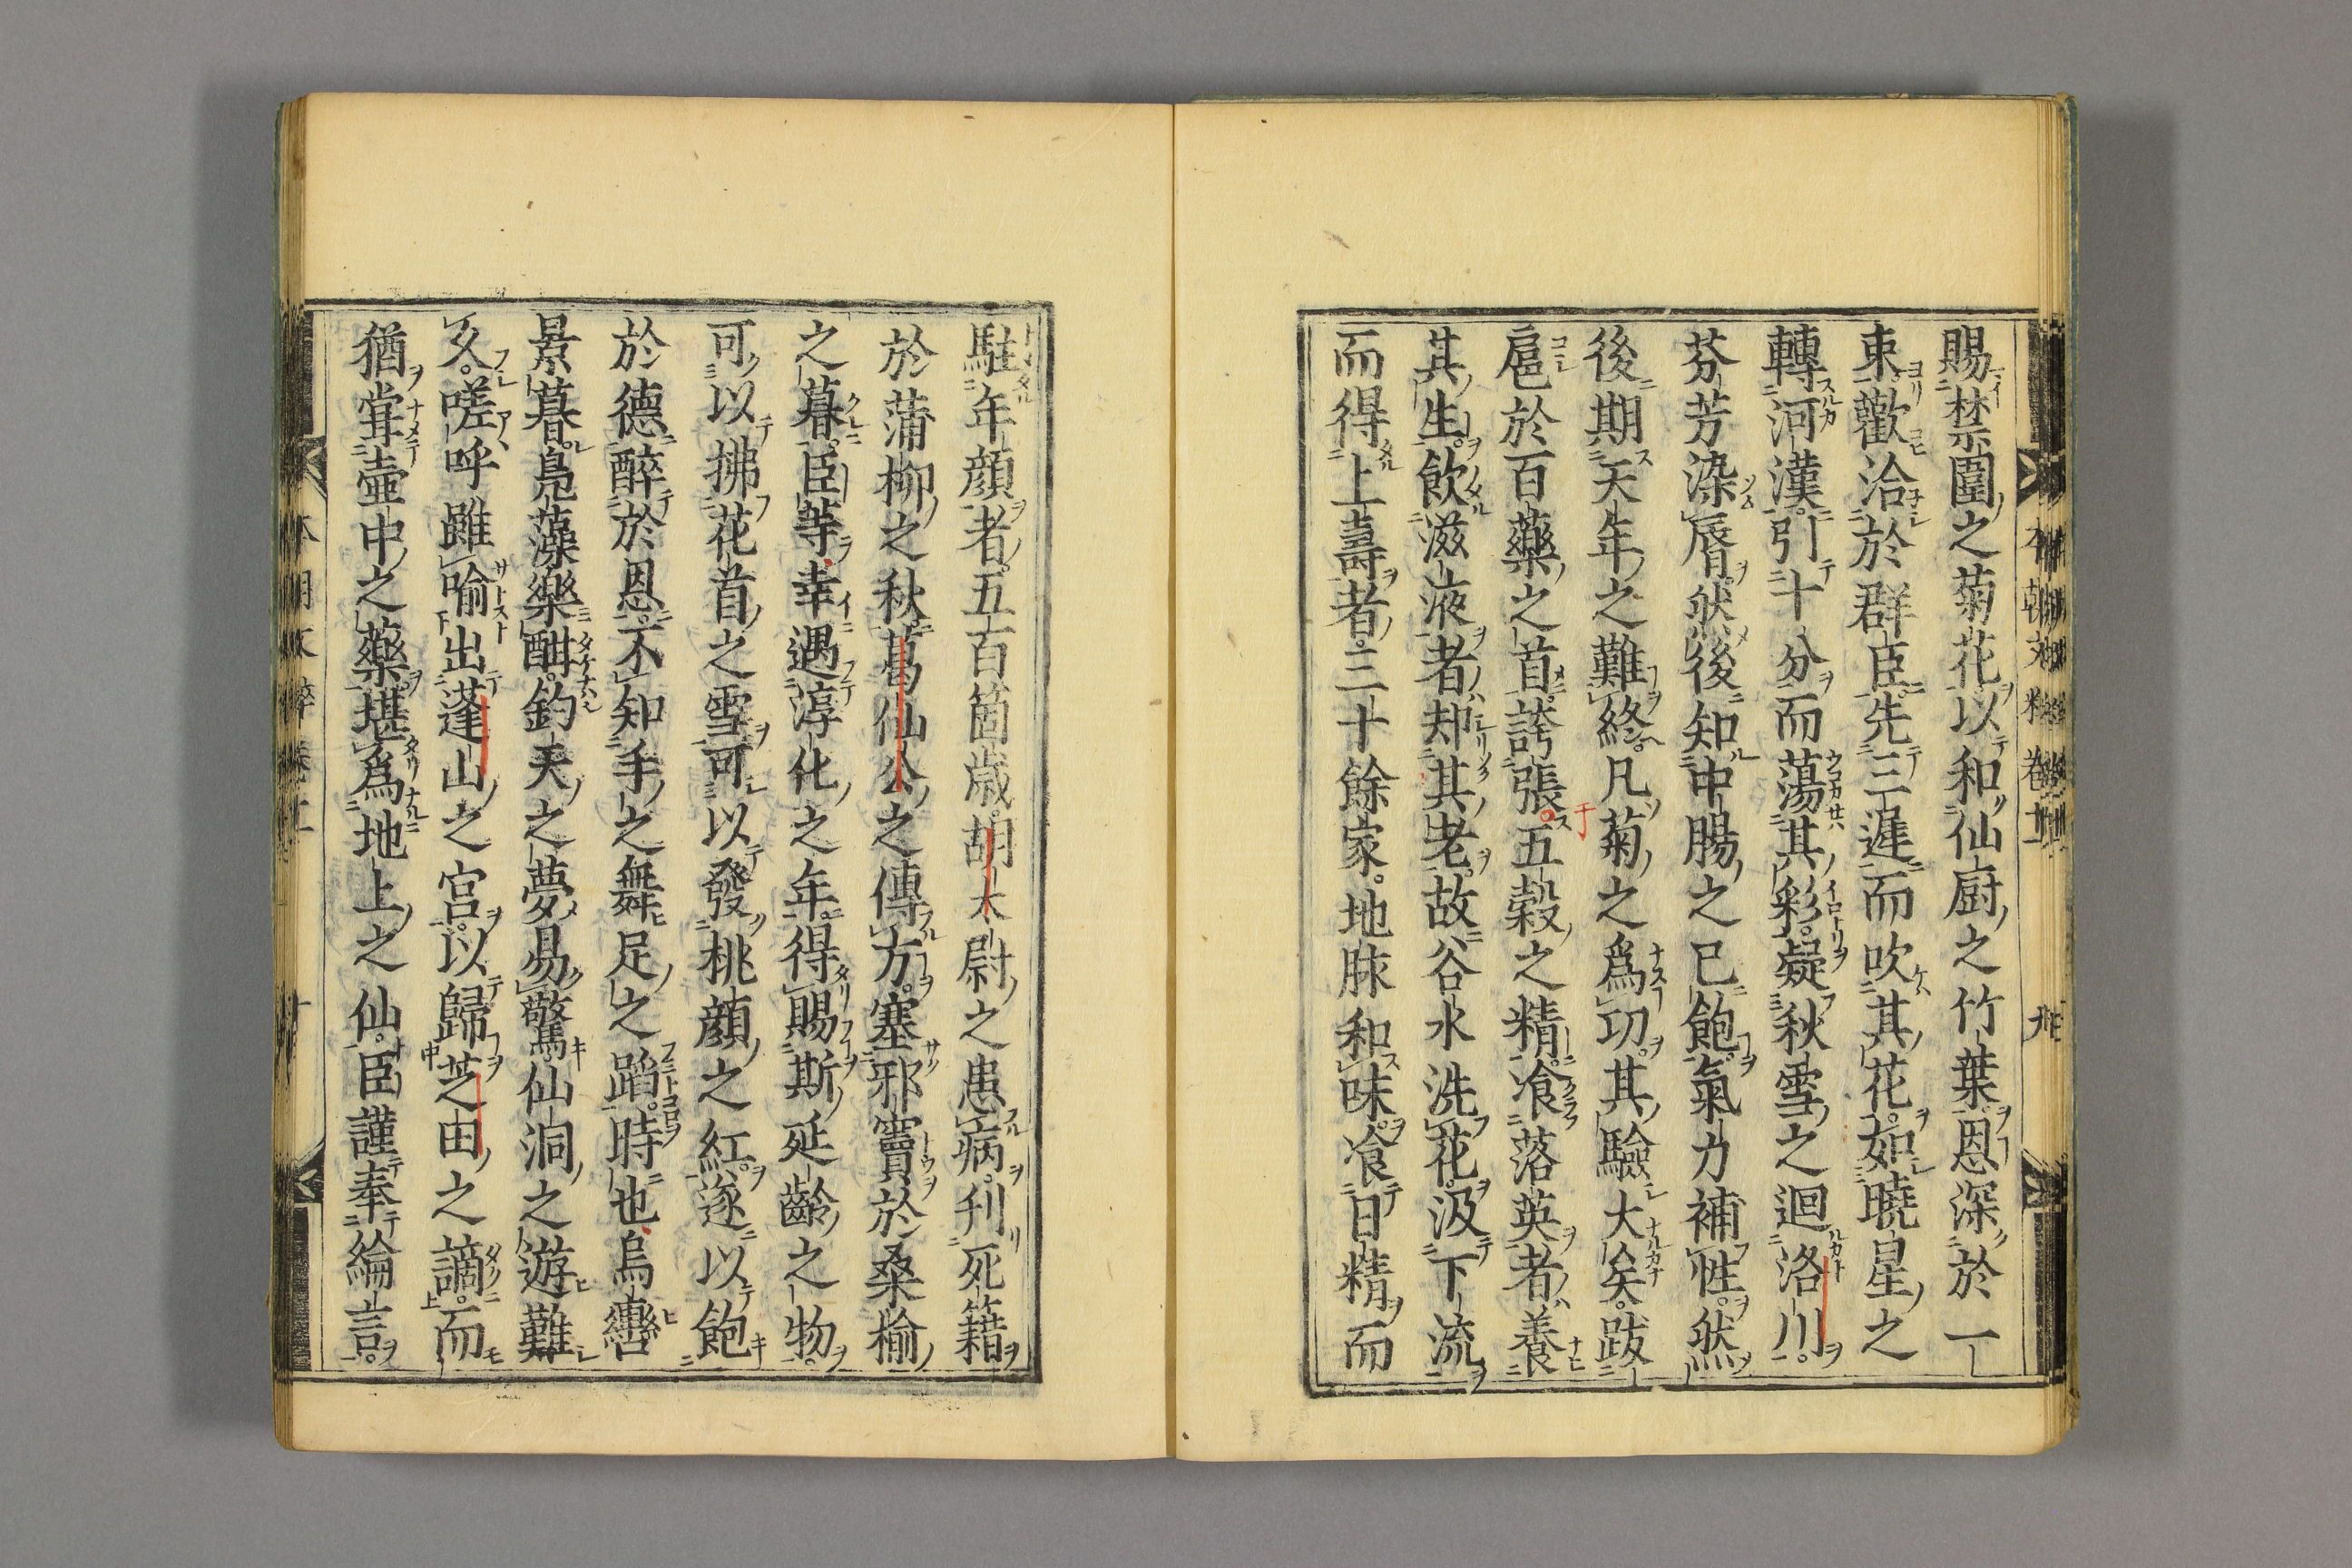 賜禁圍之菊花以和仙厨之竹葉恩深於一
束歡洽於群臣先三遲而吹其花如曉星之
轉河漢引十分而蕩其彩凝秋雪之迴洛川
芬芳染脣然後知中腸之已飽氣力補性然
後期天年之難終凡菊之爲功其驗大矣跋
扈於百藥之首誇張五穀之精飡落英者養
其生飲滋液者却其老故谷水洗花汲下流
而得上壽者三十餘家地脉和味飡日精而
駐年顔者五百箇歳胡太尉之患病刋死籍
於蒲柳之秋葛仙公之傳方塞邪竇於桑榆
之暮臣等幸遇淳化之年得賜斯延齡之物
可以拂花首之雪可以發桃顔之紅逐以飽
於德醉於恩不知手之舞足之蹈時也烏轡
景暮鳬藻樂酣釣天之夢易驚仙洞之遊難
久嗟呼雖喻出蓬山之宮以歸芝田之謫而
猶甞壺中之藥堪爲地上之仙臣謹奉綸言